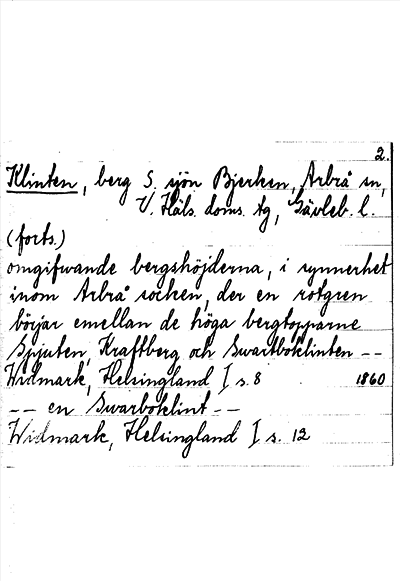 2.
Klinten, berg S. sjön Bjerken, Arbrå sn,
V. Häls. doms. tg, Gävleb. l.
(forts.)
omgifwande bergshöjderna, i synnerhet
inom Arbrå socken, der en rotgren
börjar emellan de höga bergtopparne
Spjuten, Kraftberg och Swartboklinten --
Widmark, Helsingland I s. 8 1860
-- en Swarboklint --
Widmark, Helsingland I s. 12